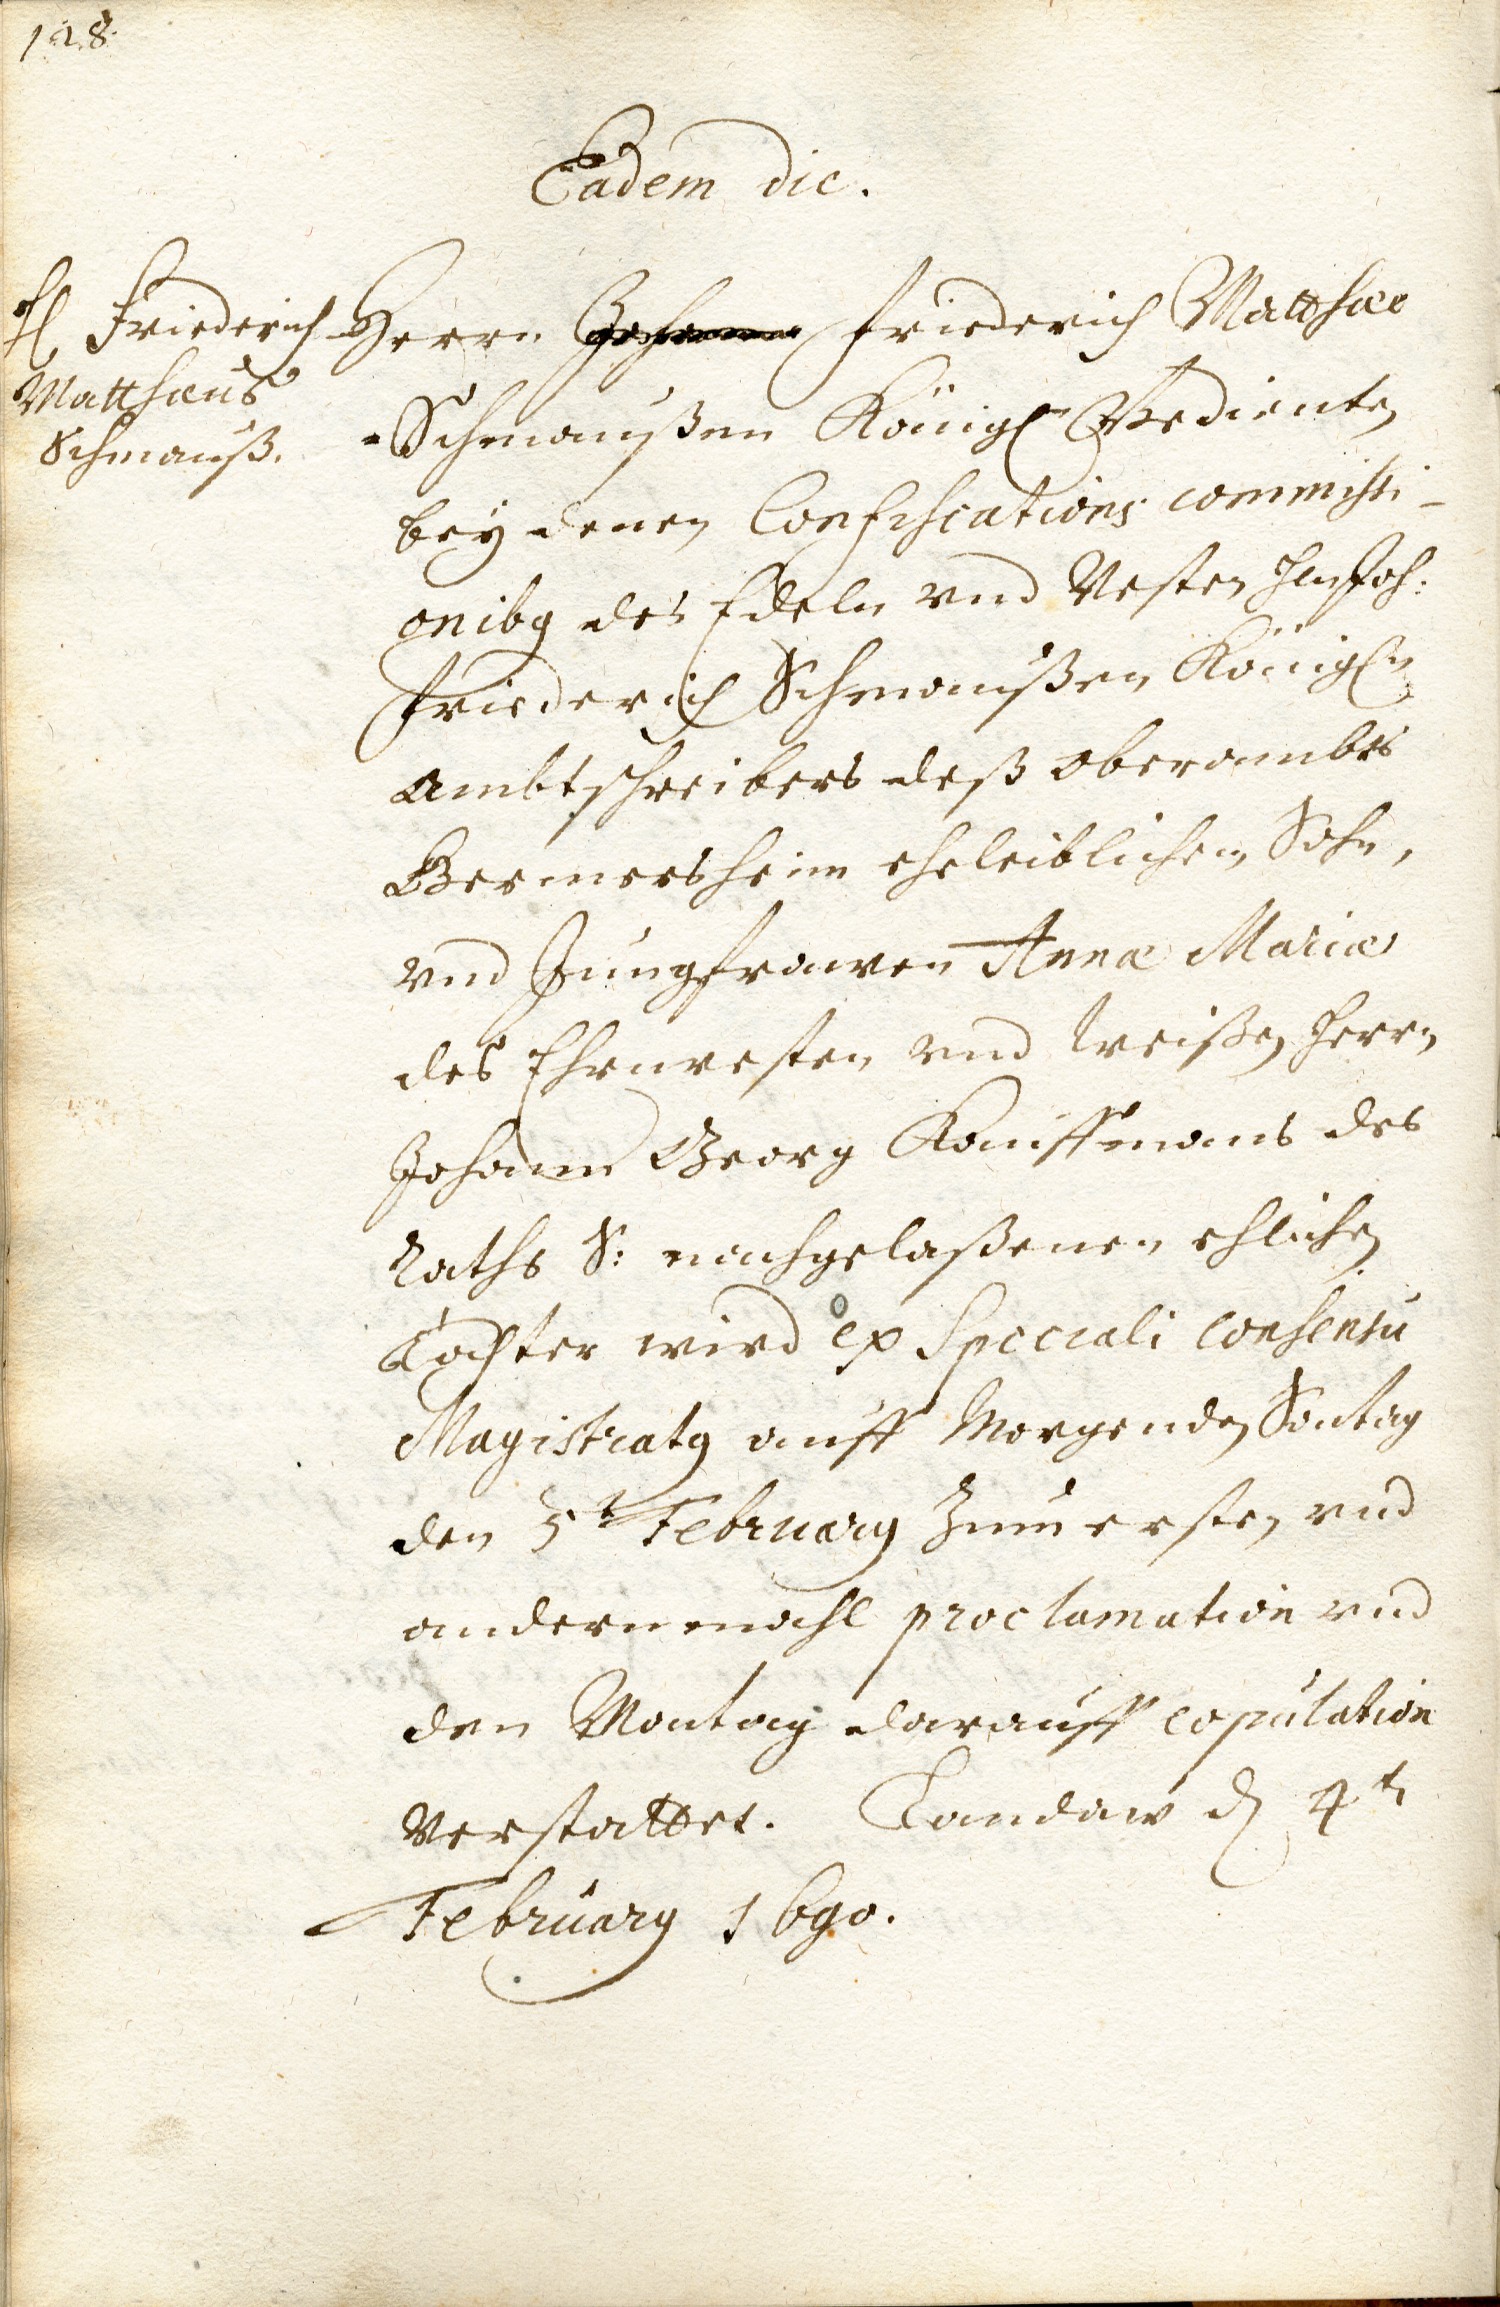 128.
Eadem die.
H. Friederich
Matthaeus
Schmauß.
Herrn Johann Friederich Matthaeo
Schmaußen Königl. Bedienten
bey denen Confiscations commissi-
onibq des Edeln vnd Vesten Hrn Joh:
Friederich Schmaußen Königln
Ambtschreibers deß Oberambts
Germersheim eheleiblichen Sohn,
vnd Jungfrawen Annæ Mariæ
des Ehrnvesten vnd Weißen Herrn
Johann Georg Kauffmans des
Raths S: nachgelaßenen ehlichen
Tochter wird ex Speciali consensu
Magistratq auff Morgenden Sontag
den 5t. February Zum ersten vnd
andernmahl proclamation vnd
den Montag darauff copulation
Verstattet. Landaw d. 4t.
February 1690.